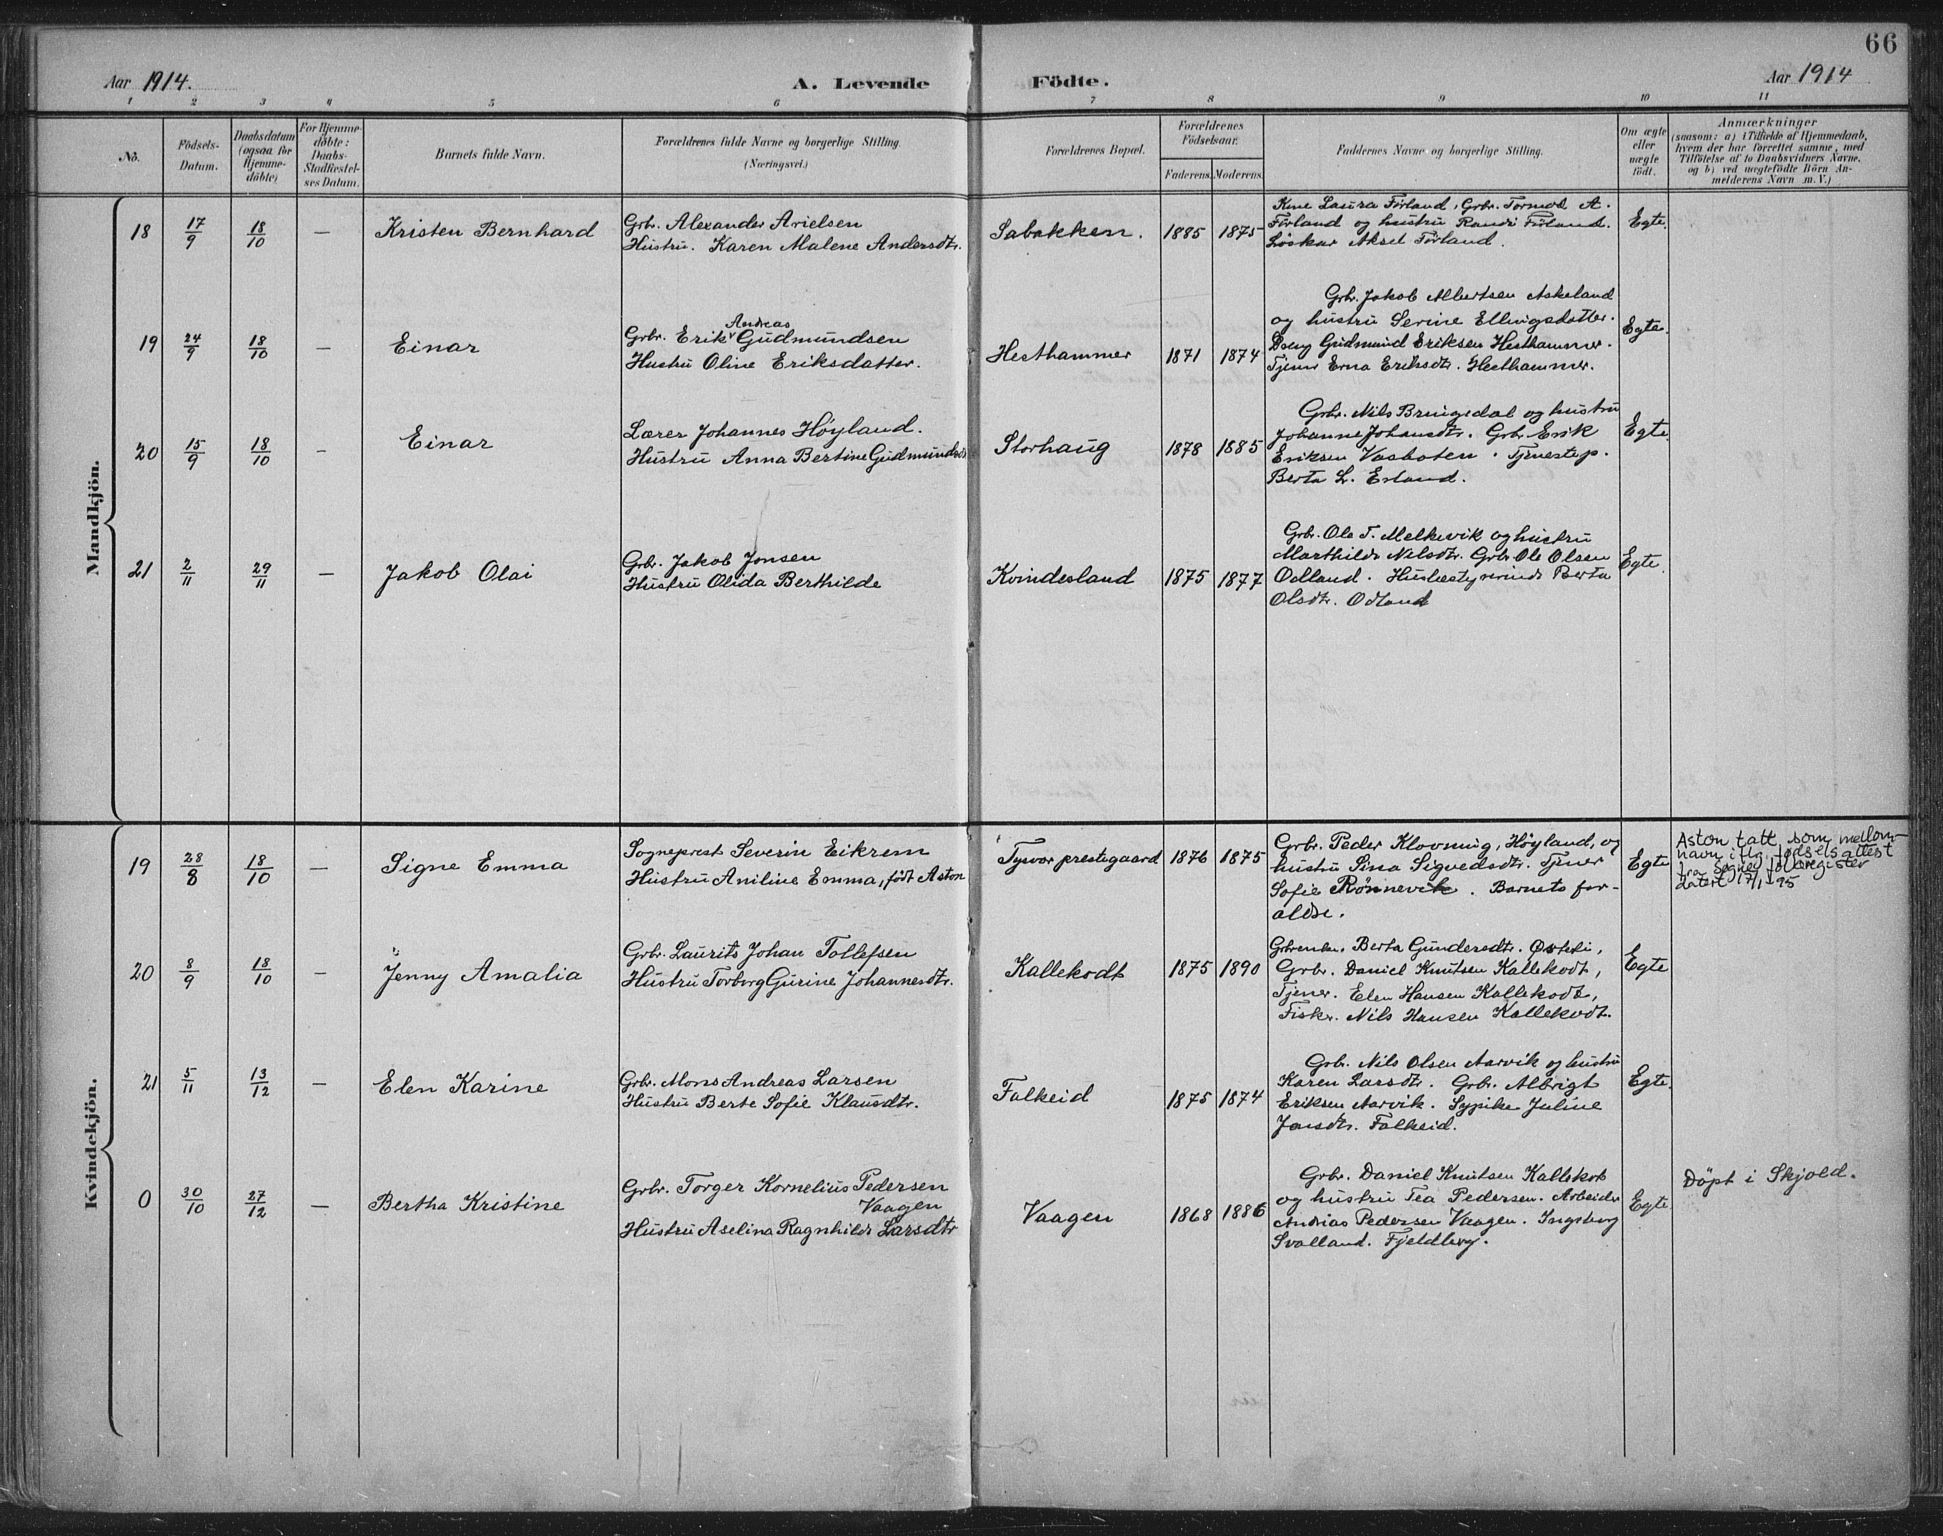 66
Aar 1914.
A. Levende Födte.
Aar 1914
1 2 3 4 5 6 7 8 9 10 11
No.
Födsels-Datum.
Daabsdatum (ogsaa for Hjemme-döbte)
For Hjemme-döbte: Daabs-Stadfæstel-ses Datum.
Barnets fulde Navn.
Forældrenes fulde Navne og borgerlige Stilling.
(Næringsvei.)
Forældrenes Bopæl.
Forældrenes Födselsaar.
Faderens. Moderens.
Faddernes Navne og borgerlige Stilling.
Om ægte eller uægte födt.
Anmærkninger
(saasom: a) i Tilfælde af Hjemmedaab,
hvem der har forrettet samme, med
Tilföielse af to Daabsvidners Navne,
og b) ved uægtefödte Börn An-
melderens Navn m. V.)
Mandkjön.
18 17/9 18/10 — Kristen Bernhard
Grb. Alexander Arielsen
Hustru. Karen Malene Andersdtr.
Sabakken. 1885 1875
Kone Laura Førland, Grb. Tormod A.
Førland og hustru Randi Førland.
Løskar Aksel Førland.
Egte.
19 24/9 18/10 — Einar
Andreas
Grb. Erik Gudmundsen
Hustru Oline Eriksdatter.
Hesthammer 1871 1874
Grb. Jakob Albertsen Askeland
og hustru Serine Ellingsdatter.
Dreng Gudmund Eriksen Hesthammer.
Tjener Erna Eriksdtr. Hesthammer.
Egte.
20 15/9 18/10 - Einar
Lærer Johannes Høyland.
Hustru Anna Bertine Gudmundsdtr
Storhaug 1878 1885
Grb. Nils Bringedal og hustru
Johanne Johansdtr. Grb. Erik
Eriksen Vasboten. Tjenestep.
Berta L. Erland.
Egte.
21 2/11 29/11 — Jakob Olai
Grb. Jakob Jonsen
Hustru Olida Berthilde
Kvindesland 1875 1877
Grb. Ole T. Melkevik og hustru
Marthilde Nilsdtr. Grb. Ole Olsen
Odland. Husbestyrerinde Berta
Olsdtr. Odland
Egte.
Kvindekjön.
19 28/8 18/10 — Signe Emma
Sogneprest Severin Eikrem
Hustru Aniline Emma, født Aston
Tysvær prestegaard 1876 1875
Grb. Peder Klovning, Høyland, og
hustru Sina Sigvedsdtr. Tjener
Sofie Rønnevik. Barnets for-
ældre.
Egte
Aston tatt som mellom-
navn iflg. fødselsattest
fra Sognef folkregister
datert 17/1-95
20 8/9 18/10 — Jenny Amalia
Grb. Laurits Johan Tollefsen
Hustru Torborg Gurine Johannesdtr.
Kallekodt 1875 1890
Grbrenke. Berta Gundersdtr.
Grb. Daniel Knutsen Kallekodt,
Tjener. Elen Hansen Kallekodt,
Fisker. Nils Hansen Kallekodt.
Egte
21 5/11 13/12 — Elen Karine
Grb. Mons Andreas Larsen
Hustru Berte Sofie Klausdtr.
Falkeid 1875 1874
Grb. Nils Olsen Aarvik og hustru
Karen Larsdtr. Grb. Albrigt
Eriksen Aarvik. Sypike Juline
Jonsdtr. Falkeid.
Egte.
0 30/10 27/12 — Bertha Kristine
Grb. Torger Kornelius Pedersen
Vaagen
Hustru Aselina Ragnhilde Larsdtr
Vaagen 1868 1886
Grb. Daniel Knutsen Kallekodt
og hustru Tea Pedersen. Arbeider
Andreas Pedersen Vaagen. Ingeborg
Svalland. Fjeldberg.
Egte
Døpt i Skjold.